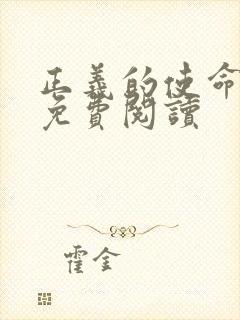 正義的使命
免費閱讀
霍金